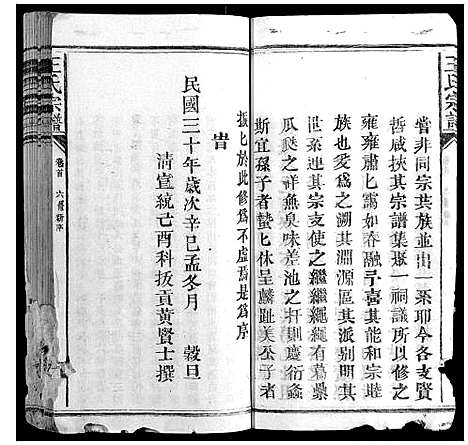 王氏宗譜
嘗非同宗共族並出一系耶今各支賢
哲咸挾其宗譜集聚一祠議所以修之
雍雍肅匕靄如春融予喜其能和宗睦
族也爰為之溯其淵源區其派别明其
世系連其宗支使之繼繼繩繩有葛藟
瓜瓞之祥無臭味差池之
則慶衍螽
斯宜孫子者蟄匕休呈麟趾美公子者
振匕於此修為不虛焉是為序
旹
民國三十年歲次辛巳孟冬月　穀旦
清宣統己酉科拔貢黃賢士撰
王氏宗譜
卷首　六修新序